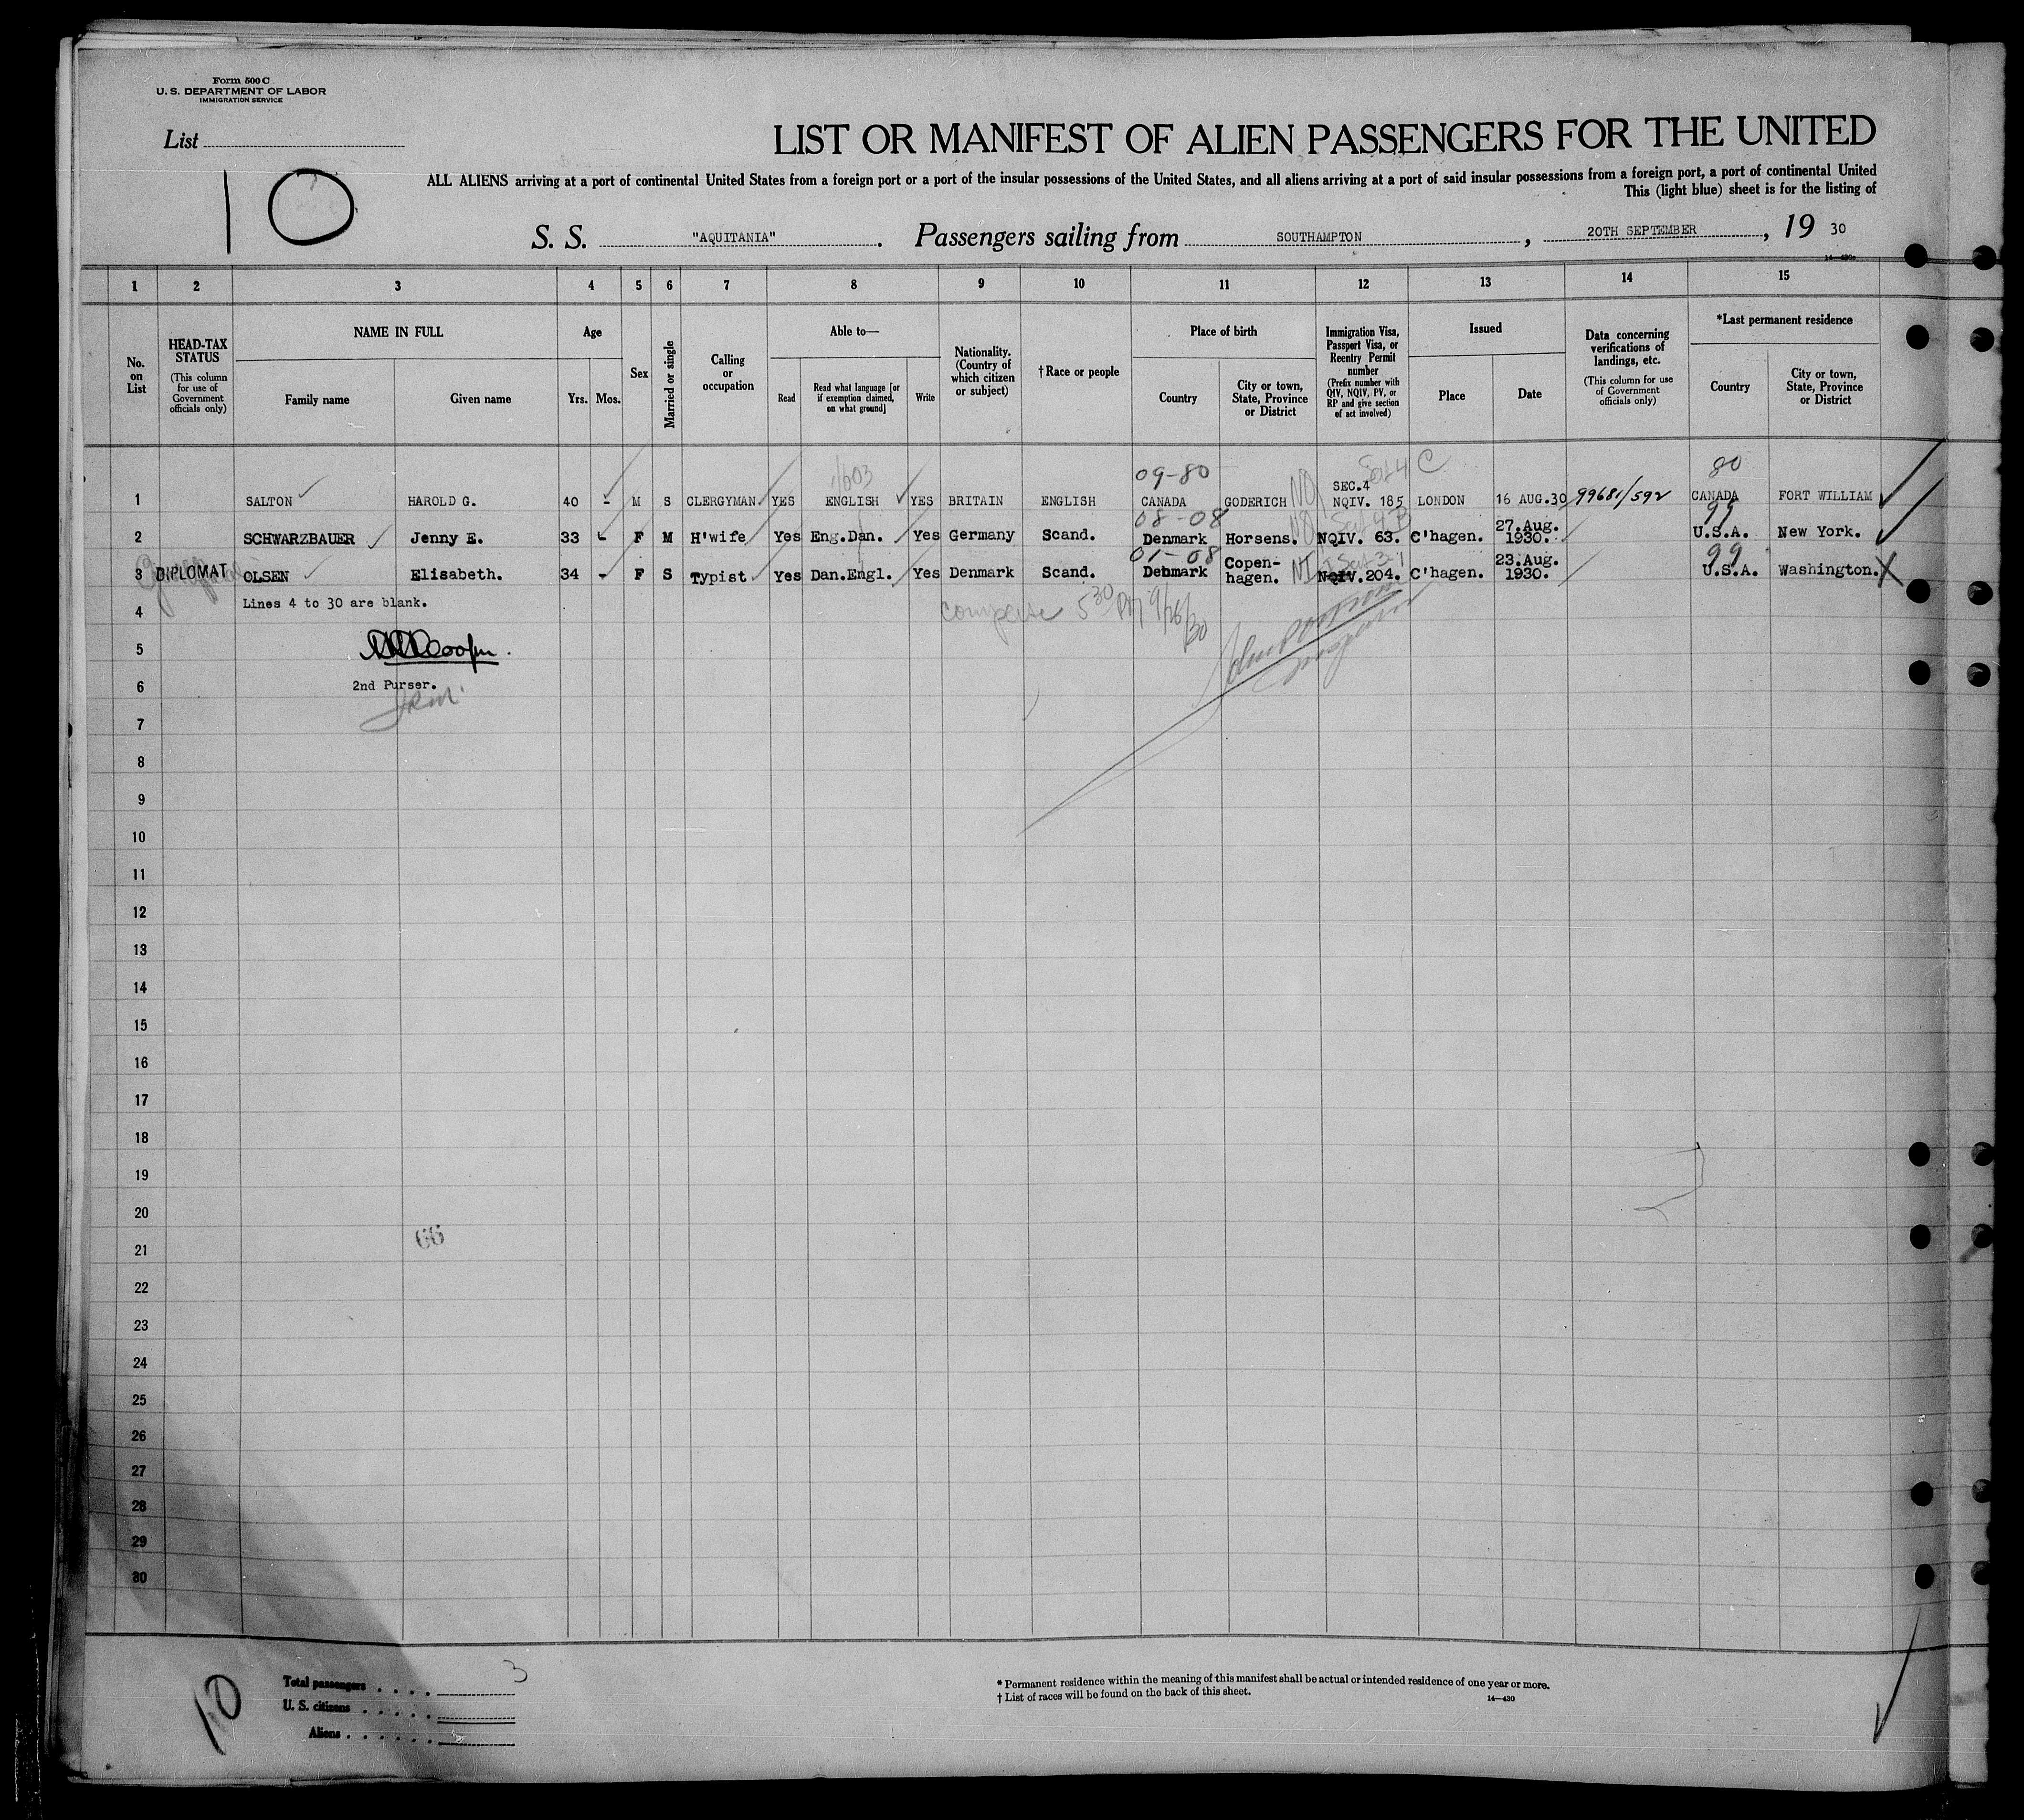 Form 500 C
U. S. DEPARTMENT OF LABOR
IMMIGRATION SERVICE
List
10
LIST OR MANIFEST OF ALIEN PASSENGERS FOR THE UNITED
ALL ALIENS arriving at a port of continental United States from a foreign port or a port of the insular possessions of the United States, and all aliens arriving at a port of said insular possessions from a foreign port, a port of continental United
This (light blue) sheet is for the listing of
S. S. "AQUITANIA". Passengers sailing from SOUTHAMPTON, 20TH SEPTEMBER, 19 30
1 2 3 4 5 6 7 8 9 10 11 12 13 14 15
No. on List
HEAD-TAX STATUS (This column for use of Government officials only)
NAME IN FULL
Family name
Given name
Age
Yrs. Mos.
Sex
Married or single
Calling or occupation
Able to—
Read
Read what language [or if exemption claimed, on what ground]
Write
Nationality. (Country of which citizen or subject)
† Race or people
Place of birth
Country
City or town, State, Province or District
Immigration Visa, Passport Visa, or Reentry Permit number (Prefix number with QIV, NQIV, PV, or RP and give section of act involved)
Issued
Place
Date
Data concerning verifications of landings, etc. (This column for use of Government officials only)
*Last permanent residence
Country
City or town, State, Province or District
09-80 Sec 4 C 80
1 SALTON HAROLD G. 40 - M S CLERGYMAN YES ENGLISH YES BRITAIN ENGLISH CANADA GODERICH NO SEC.4 NQIV. 185 LONDON 16 AUG.30 99681/592 CANADA FORT WILLIAM
08-08 99
2 SCHWARZBAUER Jenny E. 33 - F M H'wife Yes Eng.Dan. Yes Germany Scand. Denmark Horsens. NO NQIV. 63. C'hagen. 27.Aug. 1930. U.S.A. New York.
01-08 99
3 DIPLOMAT OLSEN Elisabeth. 34 - F S Typist. Yes Dan.Engl. Yes Denmark Scand. Denmark Copen-hagen. NI NQIV. 204. C'hagen. 23.Aug. 1930. U.S.A. Washington.
4 Lines 4 to 30 are blank.
5
6 2nd Purser.
7
8
9
10
11
12
13
14
15
16
17
18
19
20
66
21
22
23
24
25
26
27
28
29
30
10
Total passengers . . . . 3
U. S. citizens . . . . .
Aliens . . . . . .
* Permanent residence within the meaning of this manifest shall be actual or intended residence of one year or more.
† List of races will be found on the back of this sheet.
14—430